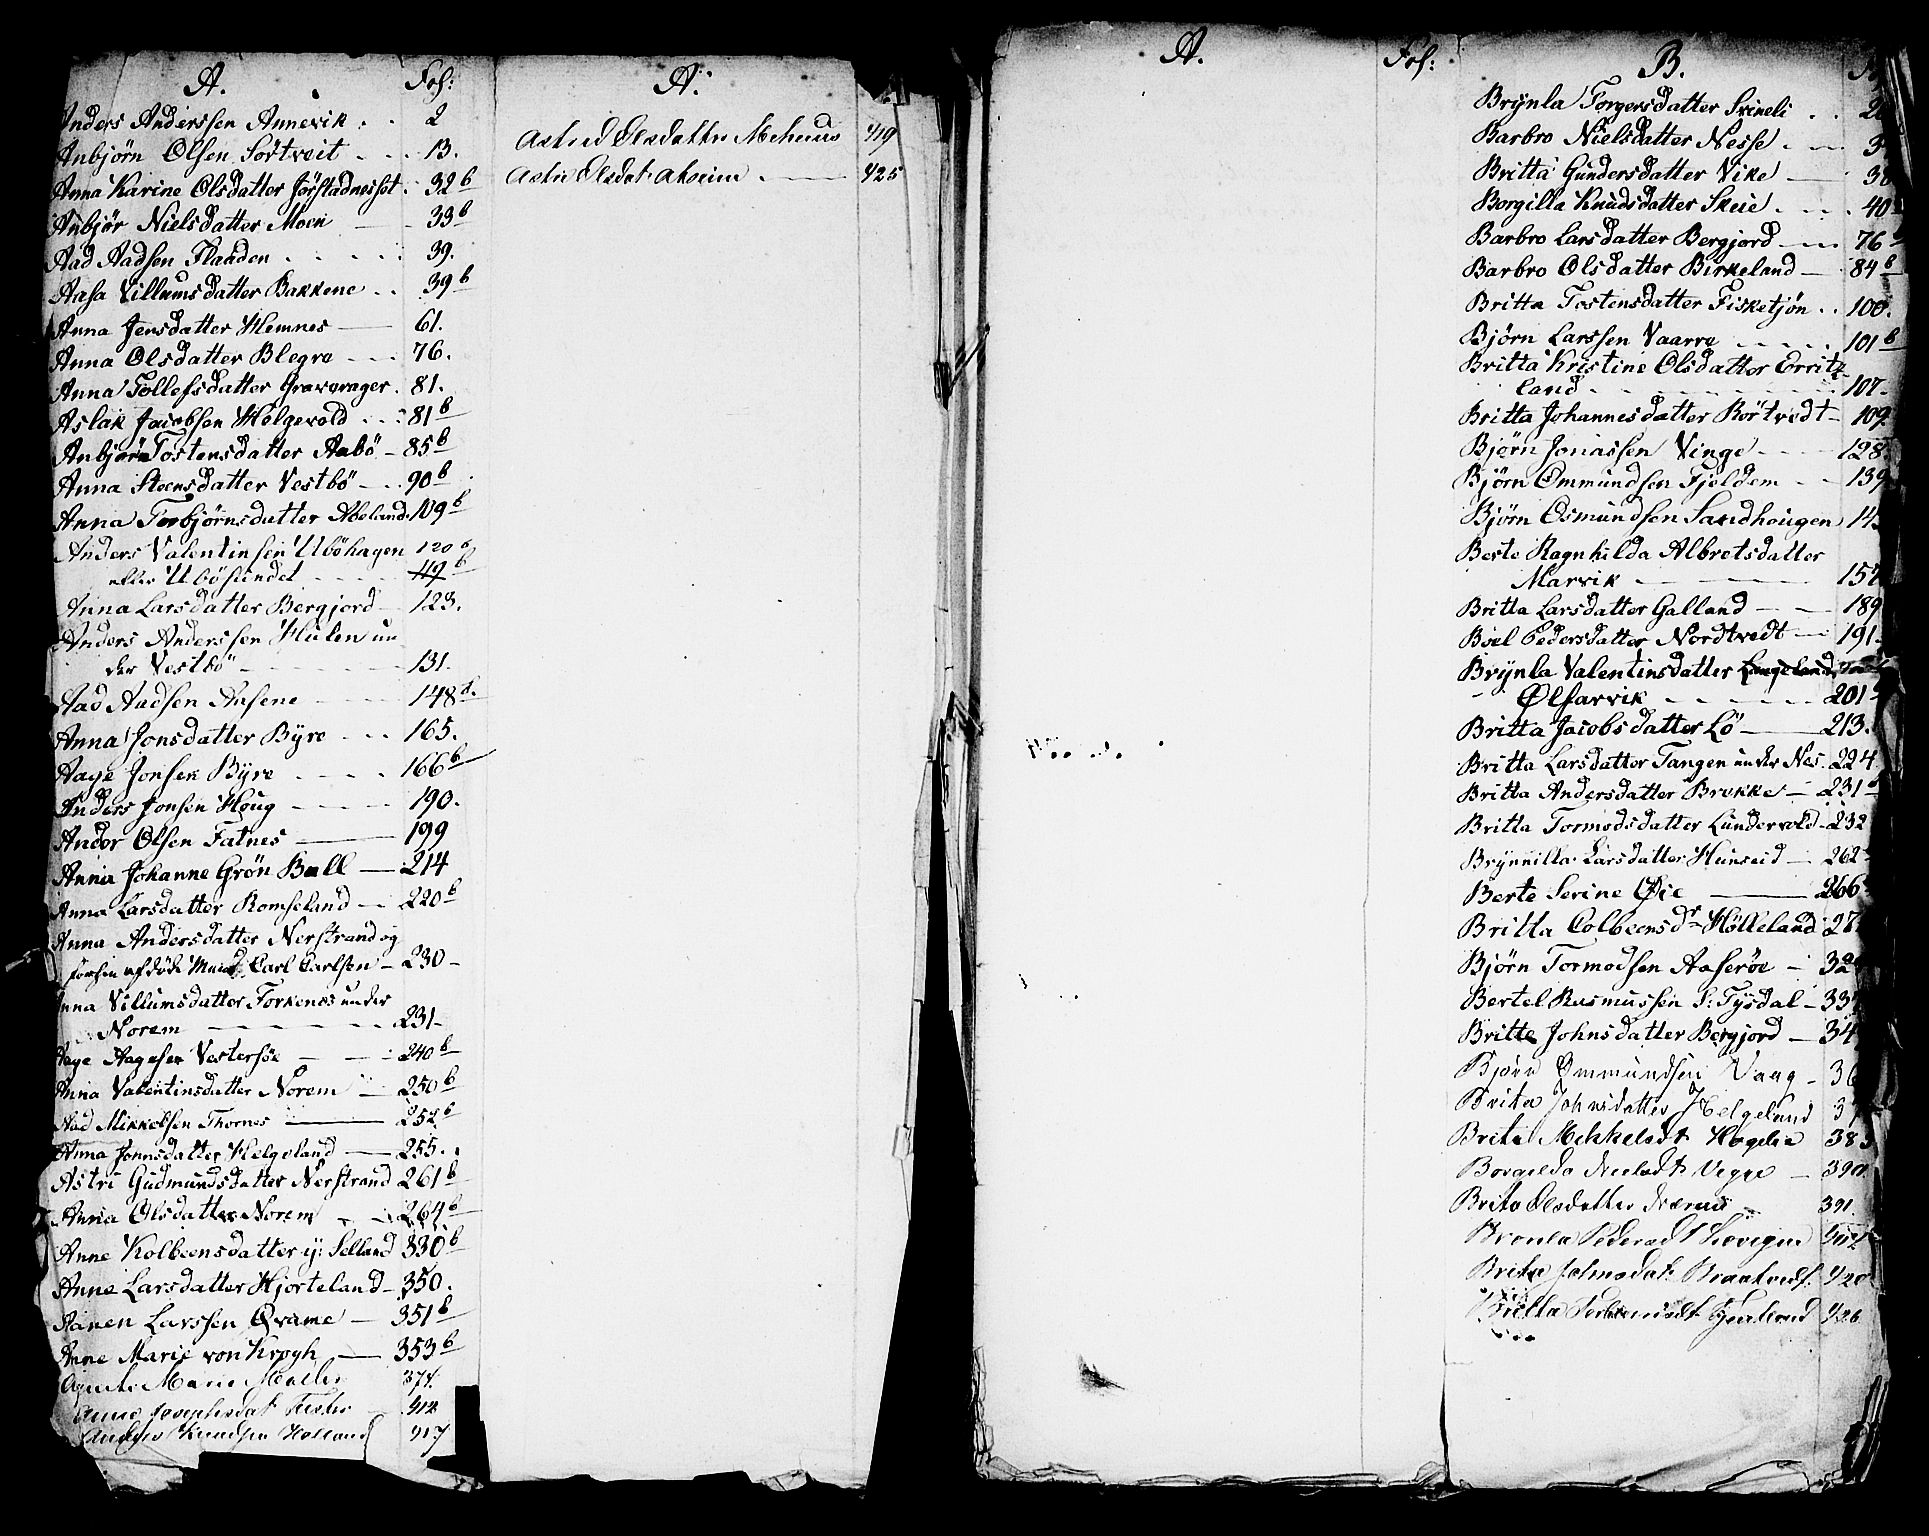 A. Fol:
Anders Anderssen Annevik . . 2
Anbjörn Olsen Sörtveit . . . 13.
Anna Karine Olsdatter Jörstadnesset . 32 b
Anbjör Nielsdatter Moen 33 b
Aad Aadsen Flauden . . . . . 39.
Aasa Villumsdatter Bakkene . . 39 b
Anna Jensdatter Hemnes 61.
Anna Olsdatter Blegra - . . 76.
Anna Tollefsdatter Gravavager . 81.
Aslak Jacobsen Helgevold . . . 81 b
Anbjörn Tostensdatter Aabö - 85 b
Anna Steensdatter Vestbö - . . 90 b
Anna Torbjörnsdatter Meland . 109 b
Anders Valentinsen Uböhagen 120 b
eller Ubösundet - - - - 119 b
Anna Larsdatter Bergjord - 123.
Anders Anderssen Hulen un
der Vestbö - - - - - 131.
Aad Aadsen Aasene - - - - 148 b.
Anna Jonsdatter Byre . . . . 165.
Aage Jonsen Byre . . . . 166 b
Anders Jonsen Houg - - - - 190.
Ander Olsen Fatnes 199
Anna Johanne Grön Ball - 214
Anna Larsdatter Romseland - - 220 b
Anna Andersdatter Nerstrand og
forhen afdöde Mand Carl Carlsen - 230 -
Anna Villumsdatter Torkenes under
Norem - - - - - 231 -
Aage Aagesen Vestersöe - - - 240 b
Anna Valentinsdatter Norem - 250 b
Aad Mikkelsen Thornes 252 b
Anna Jonnsdatter Helgeland - 255.
Astri Gudmundsdatter Nerstrand 261 b
Anna Olsdatter Norem - - 264 b
Anne Kolbeensdatter y: Selland 330 b
Anne Larsdatter Hjorteland - 350.
Aanen Larssen Qvame - 351 b
Anne Marie von Krogh - 353 b
Agnete Marie Møller 374.
Anne Josephsdat 412
Anders Knudsen Holland 417
A.
Astrid Olsdatter Mehuus 419
Astri Olsdat 425
A. Fol:
B.
Brynla Torgersdatter Svineli . .
Barbro Nielsdatter Nesse . -
Britta Gundersdatter Vike
Borgilla Knudsdatter Skeie . - . . 40
Barbro Larsdatter Bergjord - - - 76
Barbro Olsdatter Birkeland - 84 b
Britta Tostensdatter Fisketjön . . 100.
Björn Larssen Vaarra - - - - 101 b
Britta Kristine Olsdatter Orrits
land - - - - - 107.
Britta Johannesdatter Rörtvedt - 109
Björn Jonassen Vinge - - - 128
Björn Ommundsen Fjeldem - - 139
Björn Osmundsen Sandhougen
Berte Ragnhilda Albretsdatter
Marvik - - - - 157
Britta Larsdatter Galland - - 189
Boel Pedersdatter Nordtvedt - 191 -
Brynla Valentinsdatter Langeland
Ølfarvik - - - - - 201
Britta Jacobsdatter Lö 213.
Britta Larsdatter Tangen under Nes. 224
Britta Andersdatter Brekke - 231 b
Britta Tormodsdatter Lundervold - 232
Brynnilla Larsdatter Hunseid - 262
Berte Serine Øie 266
Britta Colbeensdr Hölleland
Björn Tormodsen Aaseröe -
Bertel Rasmussen S: Tysdal -
Britte Johnsdatter Bergjord -
Björn Ommundsen Vaag -
Brita Johnsdatter Helgeland
Brita Mikkelsdt Høgelie 383
Borgilda Nielsdt Vegge - 390
Brita Olsdatter 391
Pedersdt 404
Brita Johnsdat 420
Britta 426